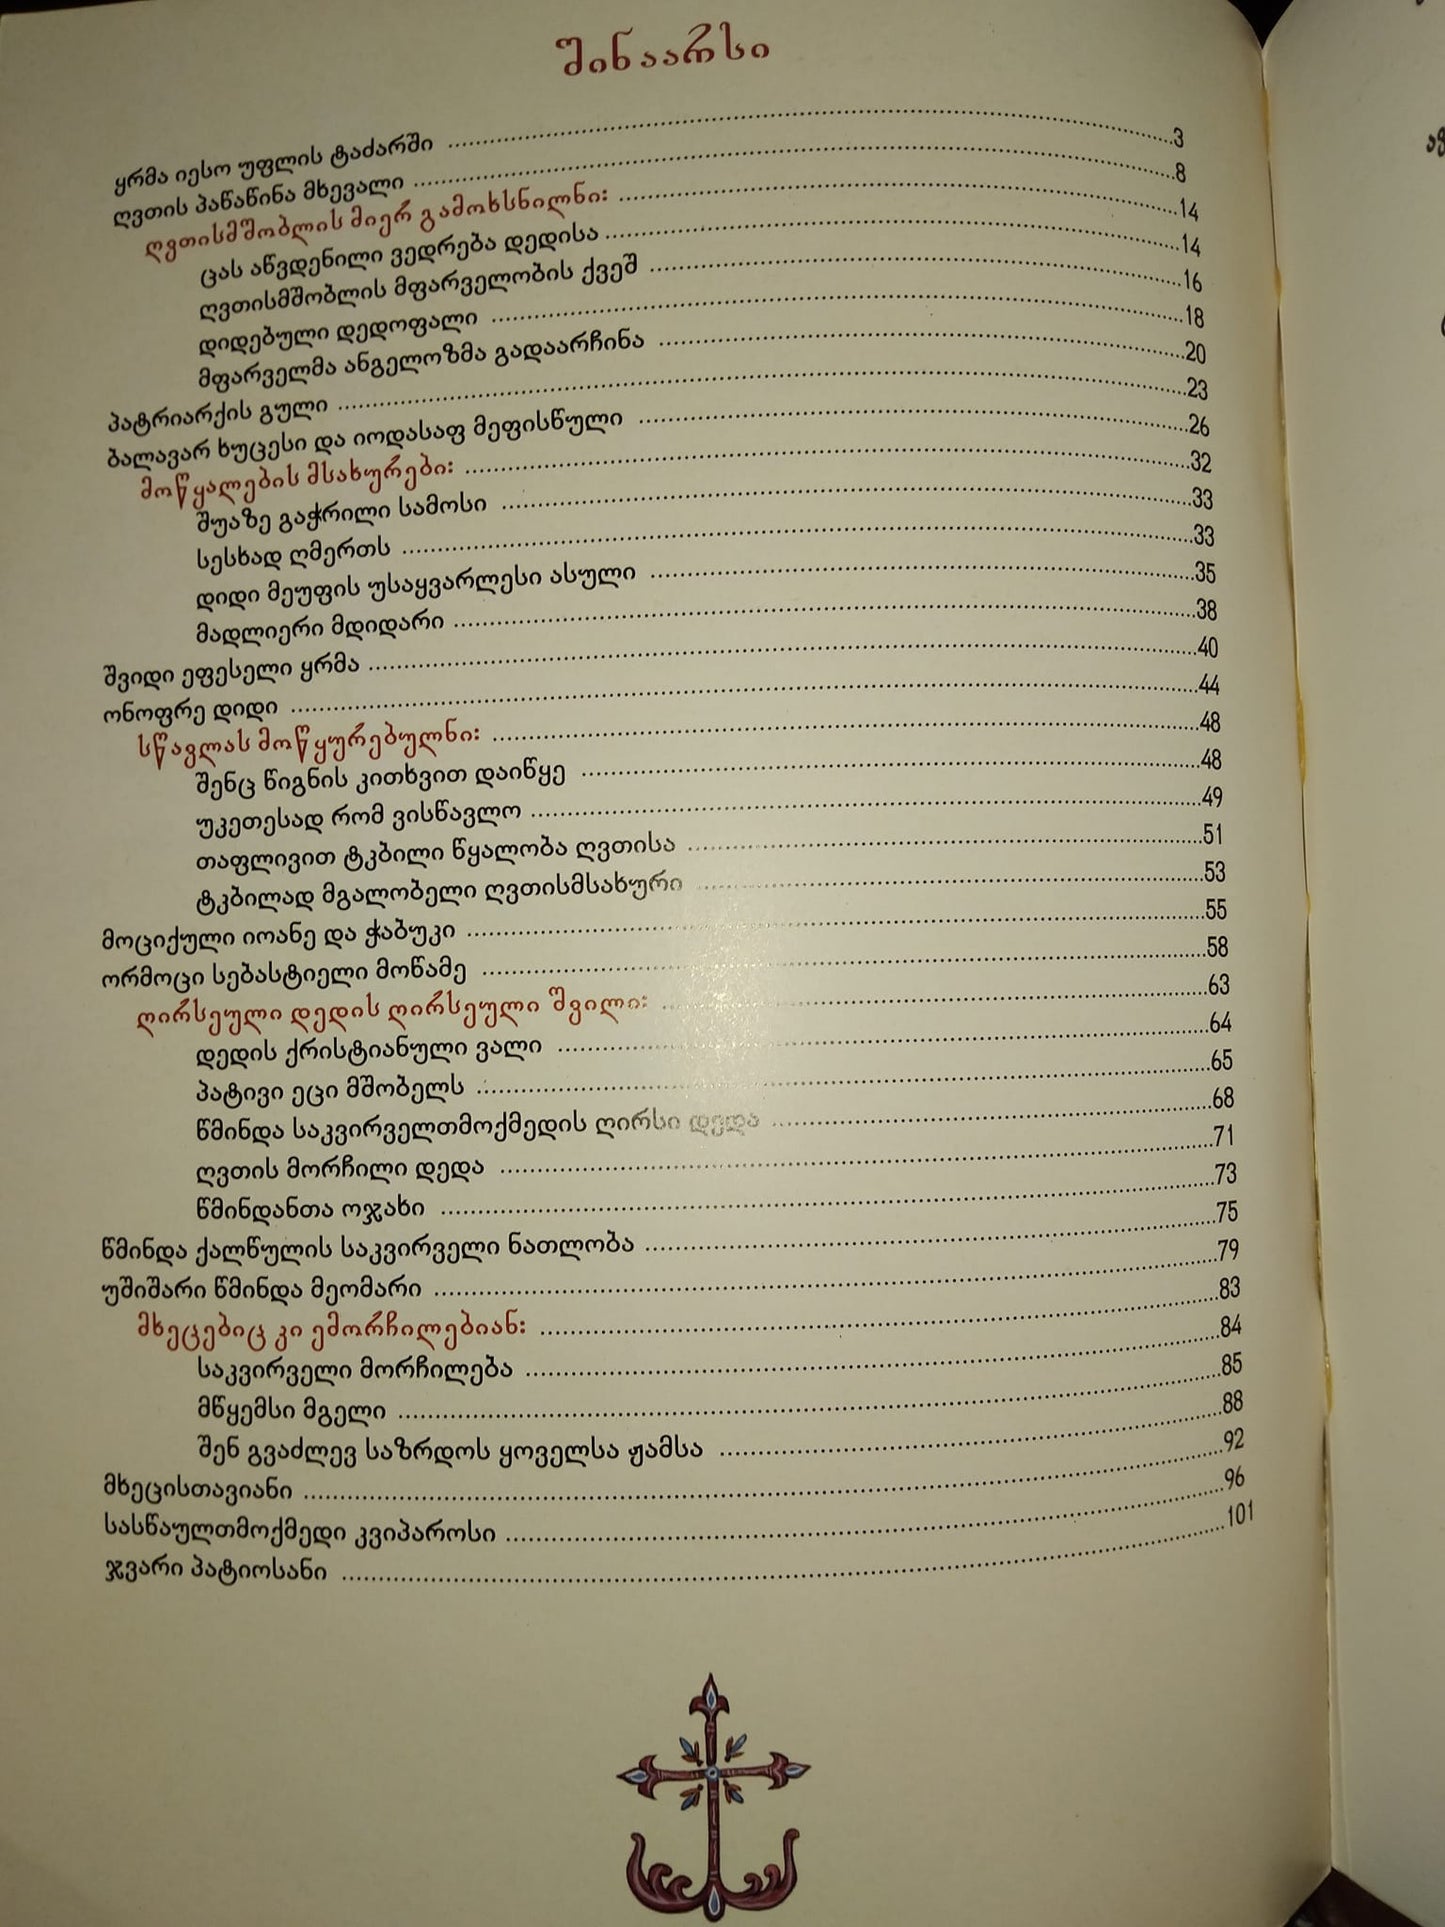 შინაარსი
ყრმა იესო უფლის ტაძარში ........ 3
ღვთის პაწაწინა მხევალი ........ 8
ღვთისმშობლის მიერ გამოხსნილნი: ........ 14
ცას აწვდენილი ვედრება დედისა ........ 14
ღვთისმშობლის მფარველობის ქვეშ ........ 16
დიდებული დედოფალი ........ 18
მფარველმა ანგელოზმა გადაარჩინა ........ 20
პატრიარქის გული ........ 23
ბალავარ ხუცესი და იოდასაფ მეფისწული ........ 26
მოწყალების მსახურები: ........ 32
შუაზე გაჭრილი სამოსი ........ 33
სესხად ღმერთს ........ 33
დიდი მეუფის უსაყვარლესი ასული ........ 35
მადლიერი მდიდარი ........ 38
შვიდი ეფესელი ყრმა ........ 40
ონოფრე დიდი ........ 44
სწავლას მოწყურებულნი: ........ 48
შენც წიგნის კითხვით დაიწყე ........ 48
უკეთესად რომ ვისწავლო ........ 49
თაფლივით ტკბილი წყალობა ღვთისა ........ 51
ტკბილად მგალობელი ღვთისმსახური ........ 53
მოციქული იოანე და ჭაბუკი ........ 55
ორმოცი სებასტიელი მოწამე ........ 58
ღირსეული დედის ღირსეული შვილი: ........ 63
დედის ქრისტიანული ვალი ........ 64
პატივი ეცი მშობელს ........ 65
წმინდა საკვირველთმოქმედის ღირსი დედა ........ 68
ღვთის მორჩილი დედა ........ 71
წმინდანთა ოჯახი ........ 73
წმინდა ქალწულის საკვირველი ნათლობა ........ 75
უშიშარი წმინდა მეომარი ........ 79
მხეცებიც კი ემორჩილებიან: ........ 83
საკვირველი მორჩილება ........ 84
მწყემსი მგელი ........ 85
შენ გვაძლევ საზრდოს ყოველსა ჟამსა ........ 88
მხეცისთავიანი ........ 92
სასწაულთმოქმედი კვიპაროსი ........ 96
ჯვარი პატიოსანი ........ 101